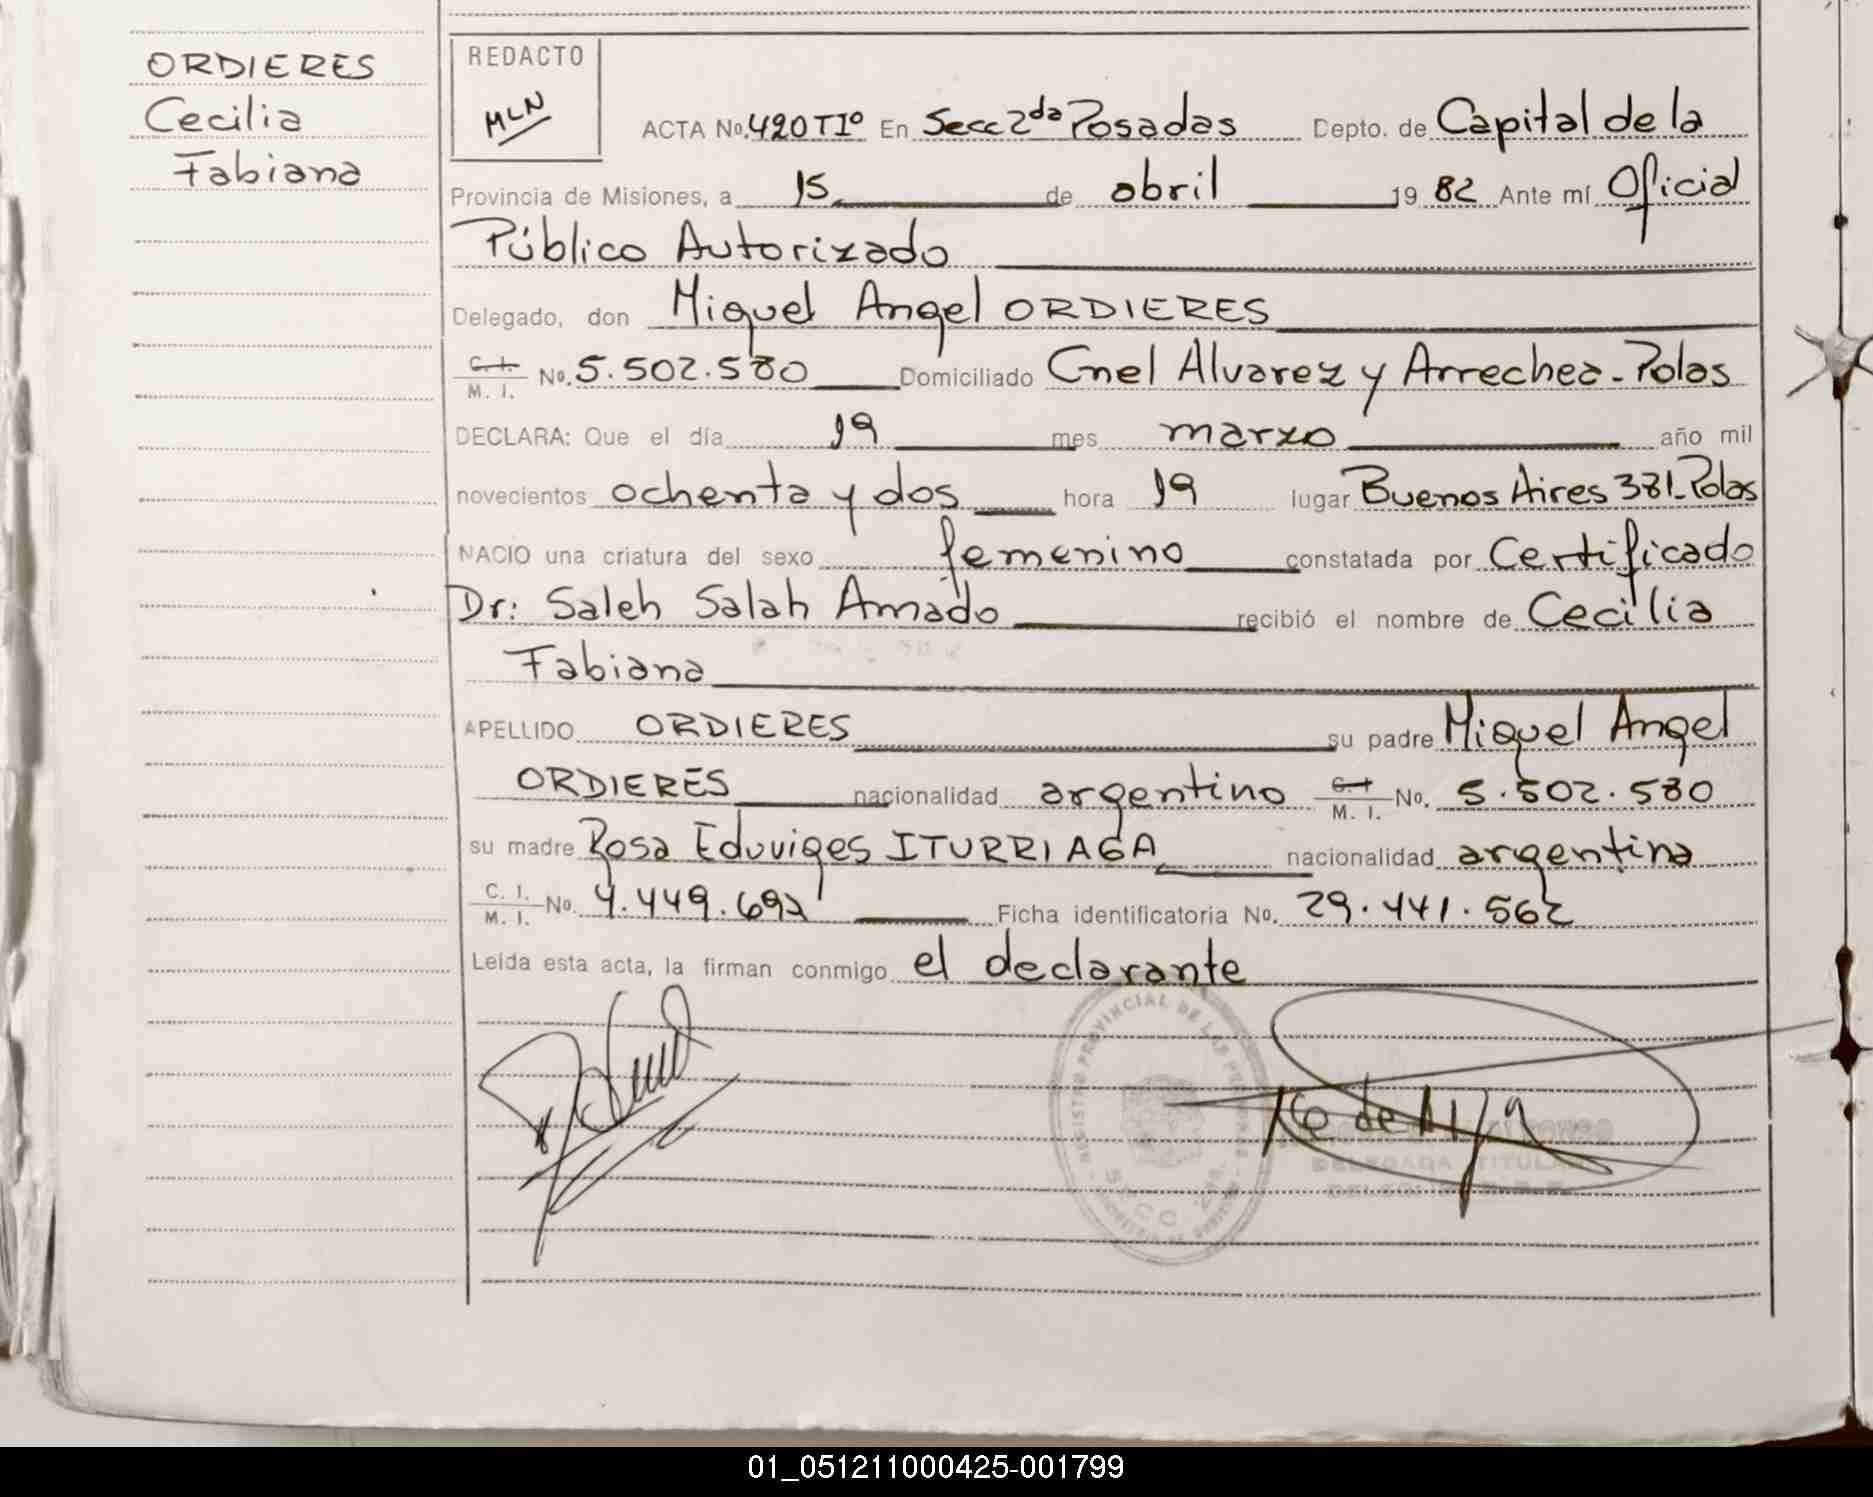 ORDIERES
Cecilia
Fabiana
REDACTO
MLN
ACTA No. 420 TIº En Secc 2da Posadas Depto. de Capital de la
Provincia de Misiones, a 15 de abril 19 82 Ante mí Oficial
Público Autorizado
Delegado, don Miguel Angel ORDIERES
C. I. M. I. No. 5.502.580 Domiciliado Cnel Alvarez y Arrechea - Pdas
DECLARA: Que el día 19 mes marzo año mil
novecientos ochenta y dos hora 19 lugar Buenos Aires 381 - Pdas
NACIO una criatura del sexo femenino constatada por Certificado
Dr: Saleh Salah Amado recibió el nombre de Cecilia
Fabiana
APELLIDO ORDIERES su padre Miguel Angel
ORDIERES nacionalidad argentino C. I. M. I. No. 5.502.580
su madre Rosa Eduviges ITURRIAGA nacionalidad argentina
C. I. M. I. No. 4.449.692 Ficha identificatoria No. 29.441.562
Leída esta acta, la firman conmigo el declarante
REGISTRO PROVINCIAL DE LAS PERSONAS
SECC. 2da.
DELEGADA TITULAR
01_051211000425-001799